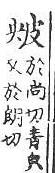 於尚切青皃
又於朗切